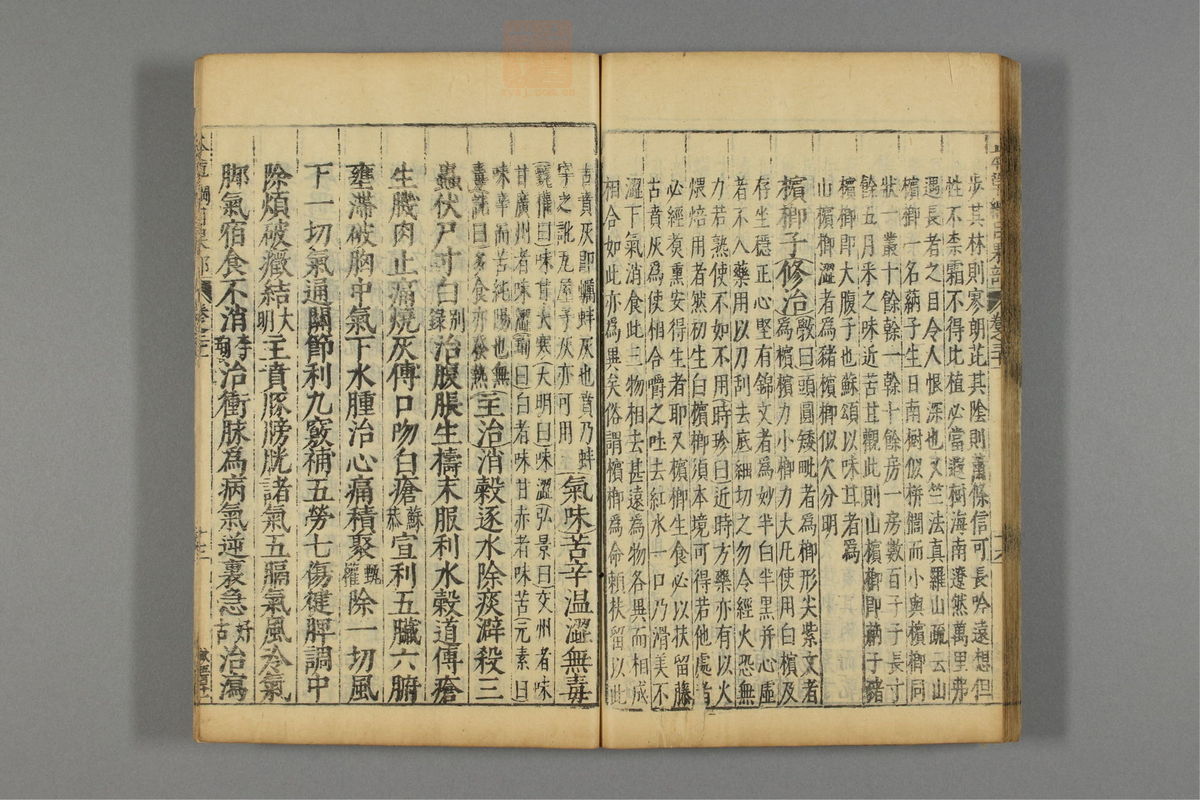 步其林則寒朗庇其陰則蕭條信可長吟遠想但
性不柰霜不得北植必當遐樹海南遼然萬里弗
遇長者之目令人恨深也又竺法真羅山疏云山
檳榔一名蒳子生日南樹似栟櫚而小與檳榔同
狀一叢十餘幹一幹十餘房一房數百子子長寸
餘五月采之味近苦甘觀此則山檳榔即蒳子豬
檳榔即大腹子也蘇頌以味甘者爲
山檳榔澀者爲豬檳榔似欠分明
檳榔子修治斆曰頭圓矮毗者爲榔形尖紫文者
爲檳檳力小榔力大凡使用白檳及
存坐穩正心堅有錦文者爲妙半白半黑并心虛
者不入藥用以刀刮去底細切之勿令經火恐無
力若熟使不如不用時珍曰近時方藥亦有以火
煨焙用者然初生白檳榔須本境可得若他處者
必經煮熏安得生者耶又檳榔生食必以扶留藤
古賁灰爲使相合嚼之吐去紅水一口乃滑美不
澀下氣消食此三物相去甚遠爲物各異而相成
相合如此亦爲異矣俗謂檳榔爲命賴扶留以此
古賁灰即蠣蚌灰也賁乃蚌
字之訛瓦屋子灰亦可用
氣味苦辛温澀無毒
甄權曰味甘大寒大明曰味澀弘景曰交州者味
甘廣州者味澀珣曰白者味甘赤者味苦元素曰
味辛而苦純陽也無
毒詵曰多食亦發熱
主治消穀逐水除痰澼殺三
蟲伏尸寸白别錄治腹脹生擣末服利水穀道傅瘡
生肌肉止痛燒灰傅口吻白瘡蘇恭宣利五臟六腑
壅滯破胸中氣下水腫治心痛積聚甄權除一切風
下一切氣通關節利九竅補五勞七傷健脾調中
除煩破癥結大明主賁豚膀胱諸氣五膈氣風冷氣
脚氣宿食不消李珣治衝脉爲病氣逆裏急好古治瀉